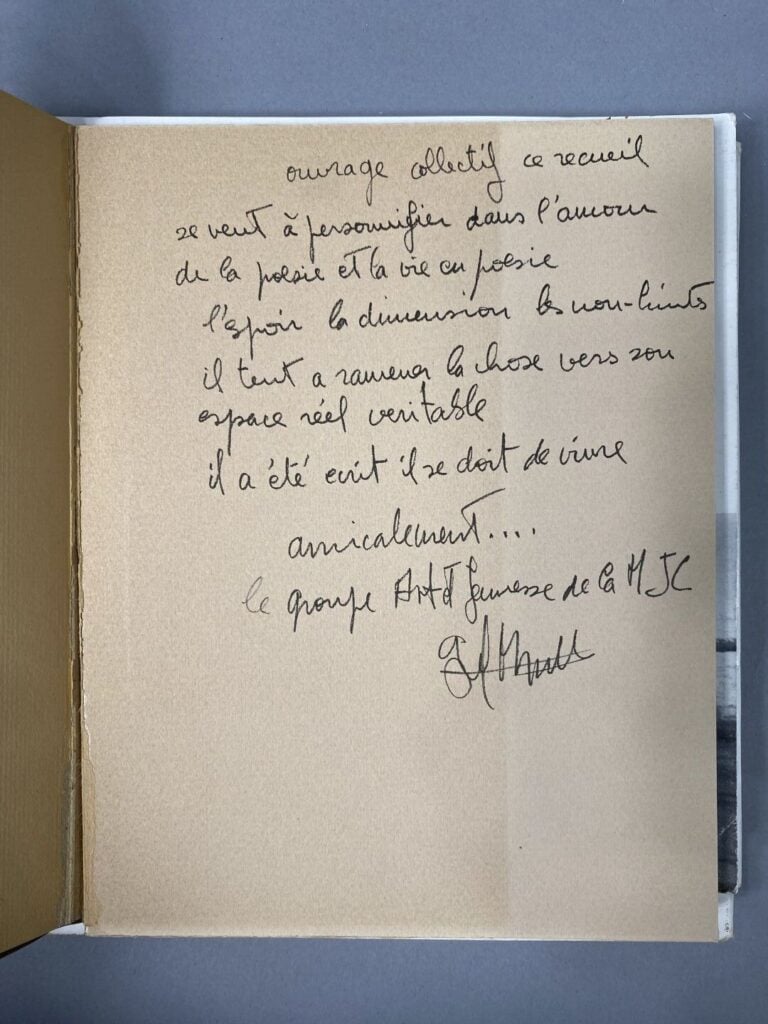 ouvrage collectif ce recueil
se veut à personnifier dans l'amour
de la poesie et la vie en poesie
l'espoir la dimension les non-limits
il tent a ramener la chose vers son
espace réel veritable
il a été ecrit il se doit de vivre
amicalement....
le groupe Art et Jeunesse de la MJC